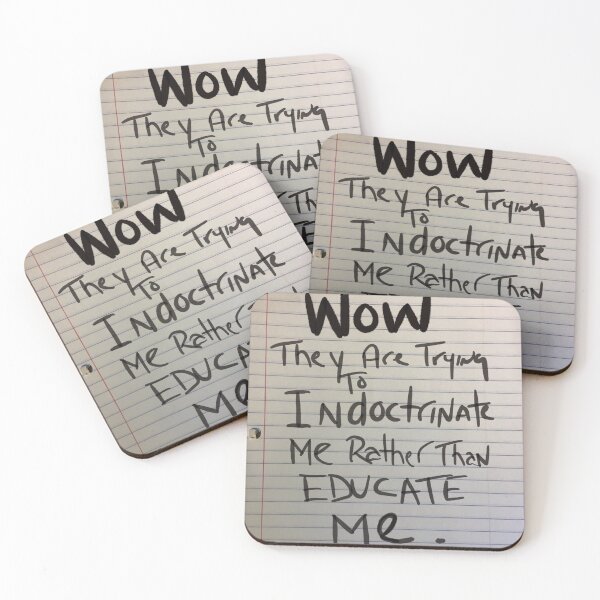 WOW
They Are Trying
To
INdoctrinat
WOW
They Are Trying
To
INdoctrinate
Me Rather Than
WOW
They Are Trying
To
INdoctrinate
Me Rather
EDUCA
Me
WOW
They Are Trying
To
INdoctrinate
Me Rather Than
EDUCATE
Me.